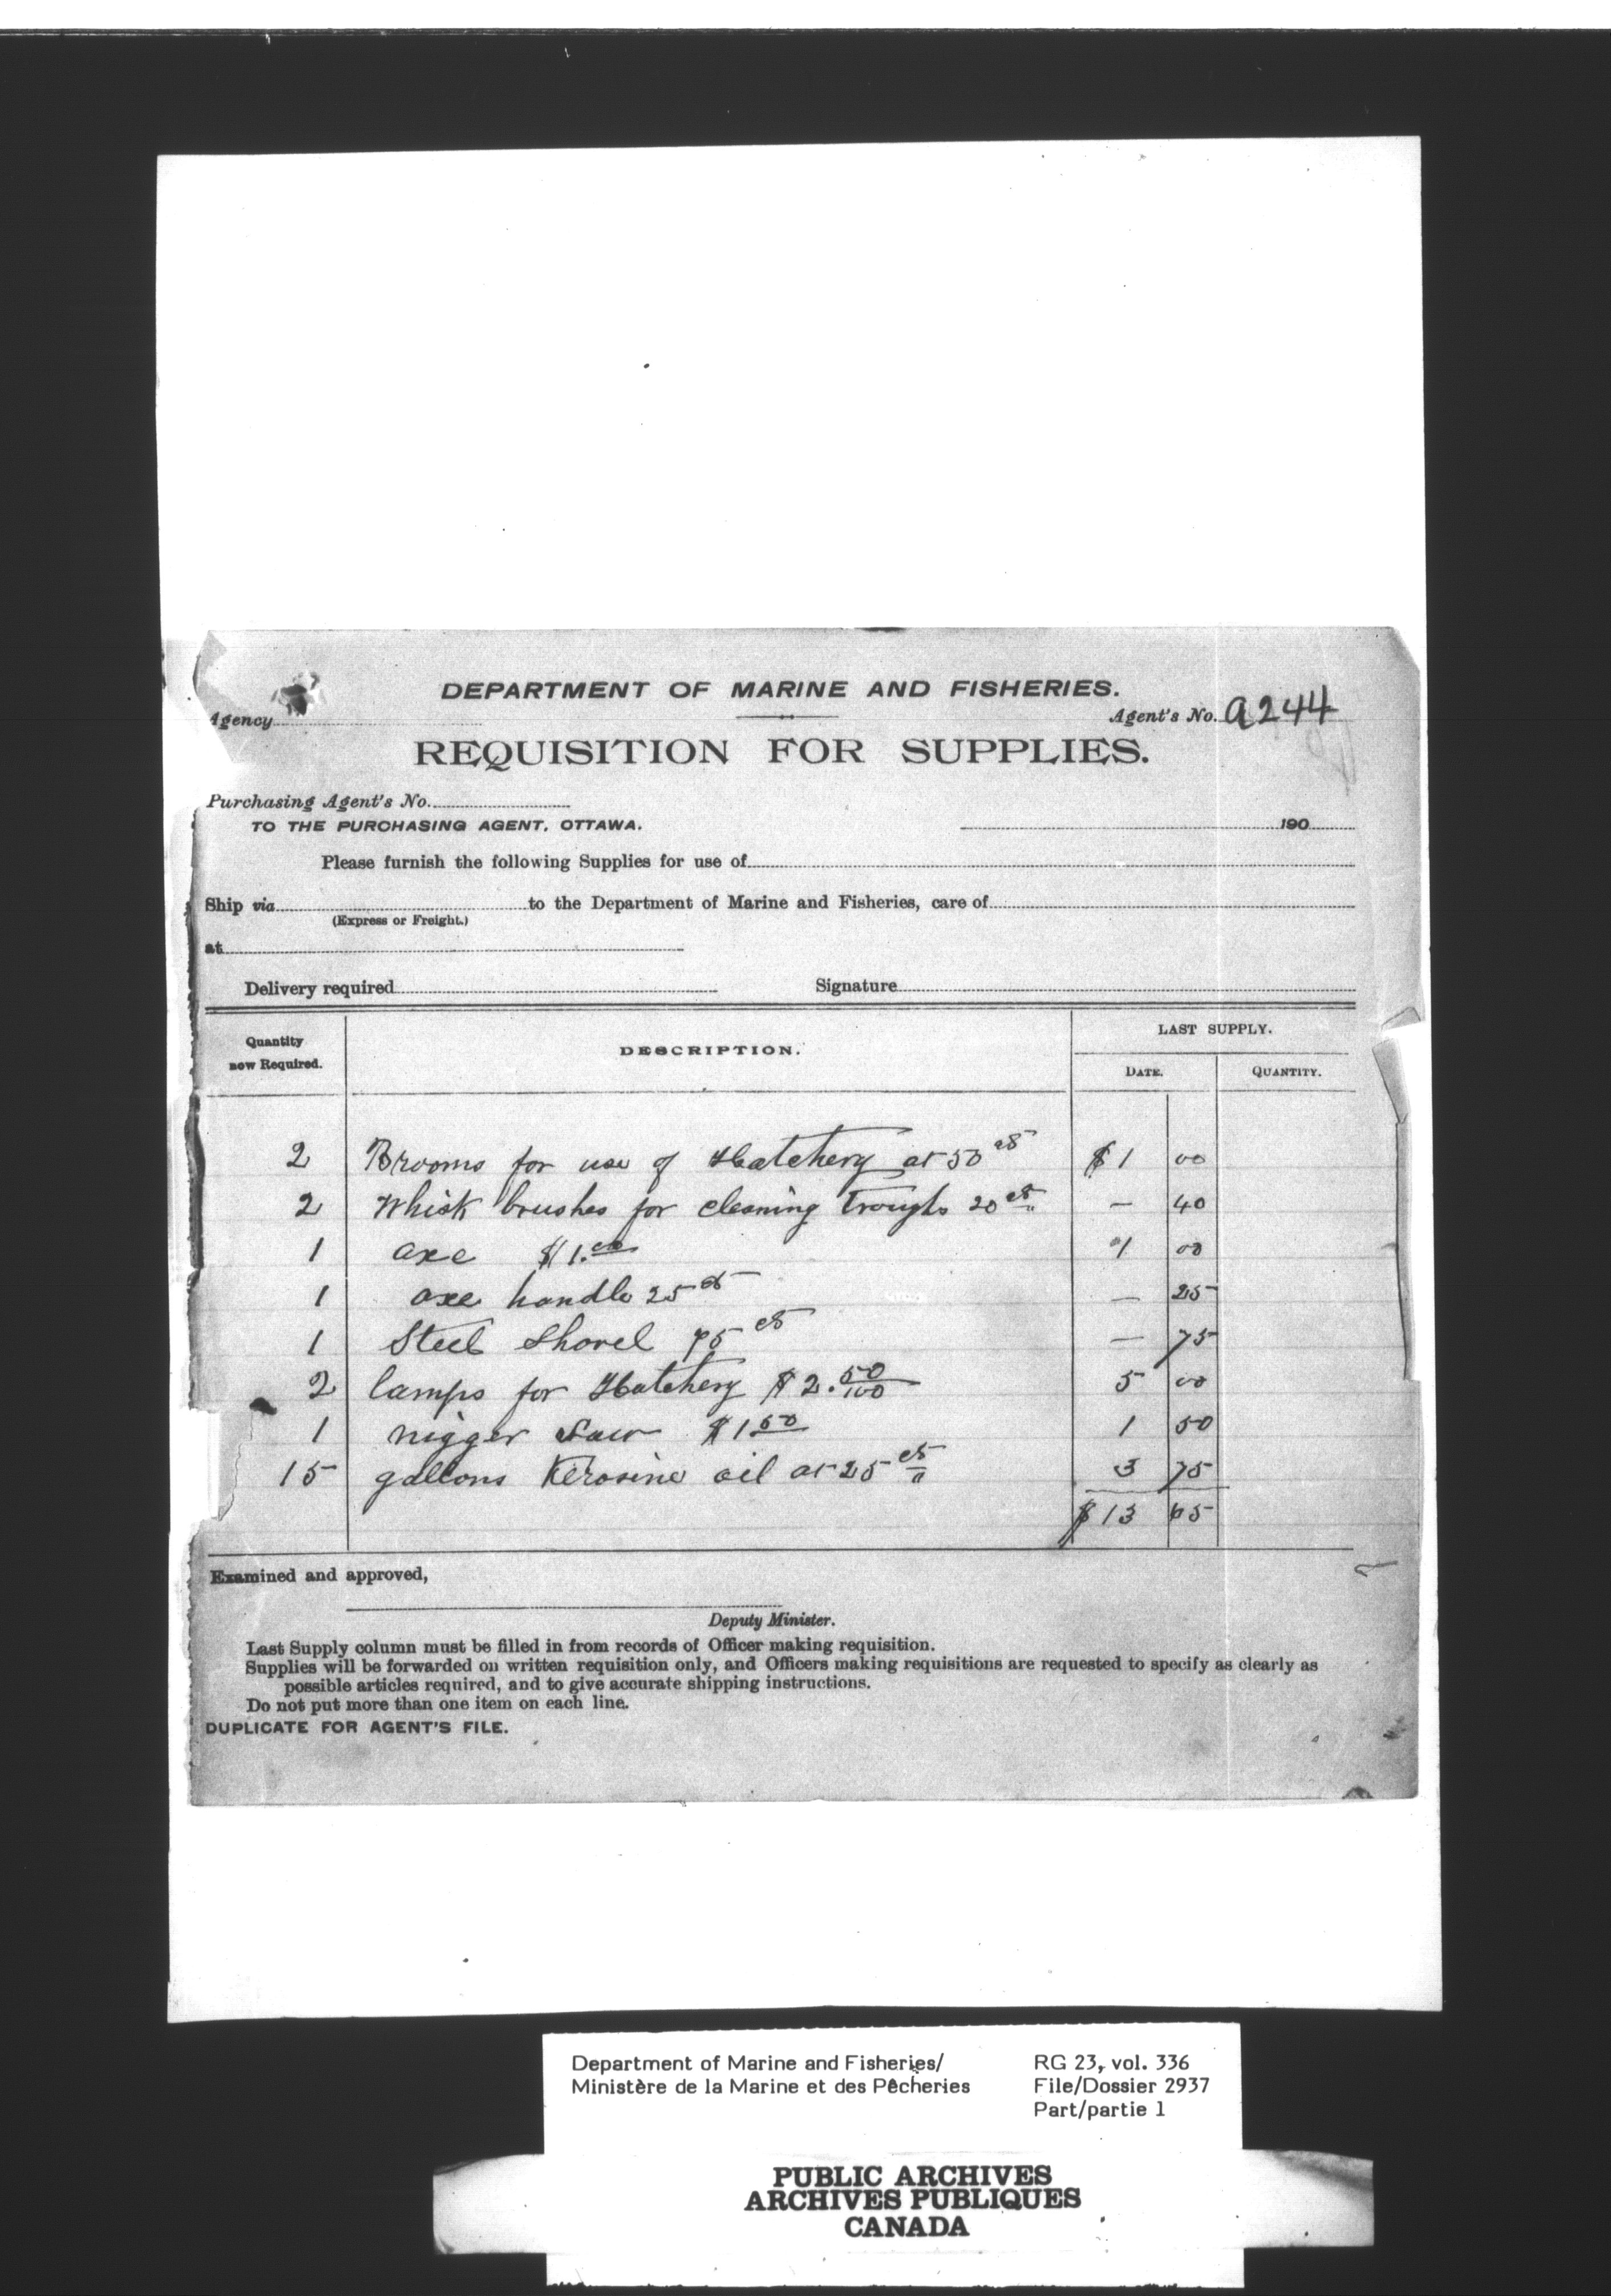 DEPARTMENT OF MARINE AND FISHERIES.
Agency
Agent's No. a244
REQUISITION FOR SUPPLIES.
Purchasing Agent's No.
TO THE PURCHASING AGENT, OTTAWA.
190
Please furnish the following Supplies for use of
Ship via to the Department of Marine and Fisheries, care of
(Express or Freight.)
at
Delivery required Signature
Quantity now Required. DESCRIPTION. LAST SUPPLY.
DATE. QUANTITY.
2 Brooms for use of Hatchery at 50 cts $1 00
2 Whisk brushes for cleaning troughs 20 cts " — 40
1 axe $1.00 "1 00
1 axe handle 25 cts — 25
1 Steel Shovel 75 cts — 75
2 lamps for Hatchery $2.50/100 5 00
1 nigger Saw $1 50 1 50
15 gallons Kerosine oil at 25 cts " 3 75
$13 65
Examined and approved,
Deputy Minister.
Last Supply column must be filled in from records of Officer making requisition.
Supplies will be forwarded on written requisition only, and Officers making requisitions are requested to specify as clearly as
possible articles required, and to give accurate shipping instructions.
Do not put more than one item on each line.
DUPLICATE FOR AGENT'S FILE.
Department of Marine and Fisheries/ RG 23, vol. 336
Ministère de la Marine et des Pêcheries File/Dossier 2937
Part/partie 1
PUBLIC ARCHIVES
ARCHIVES PUBLIQUES
CANADA